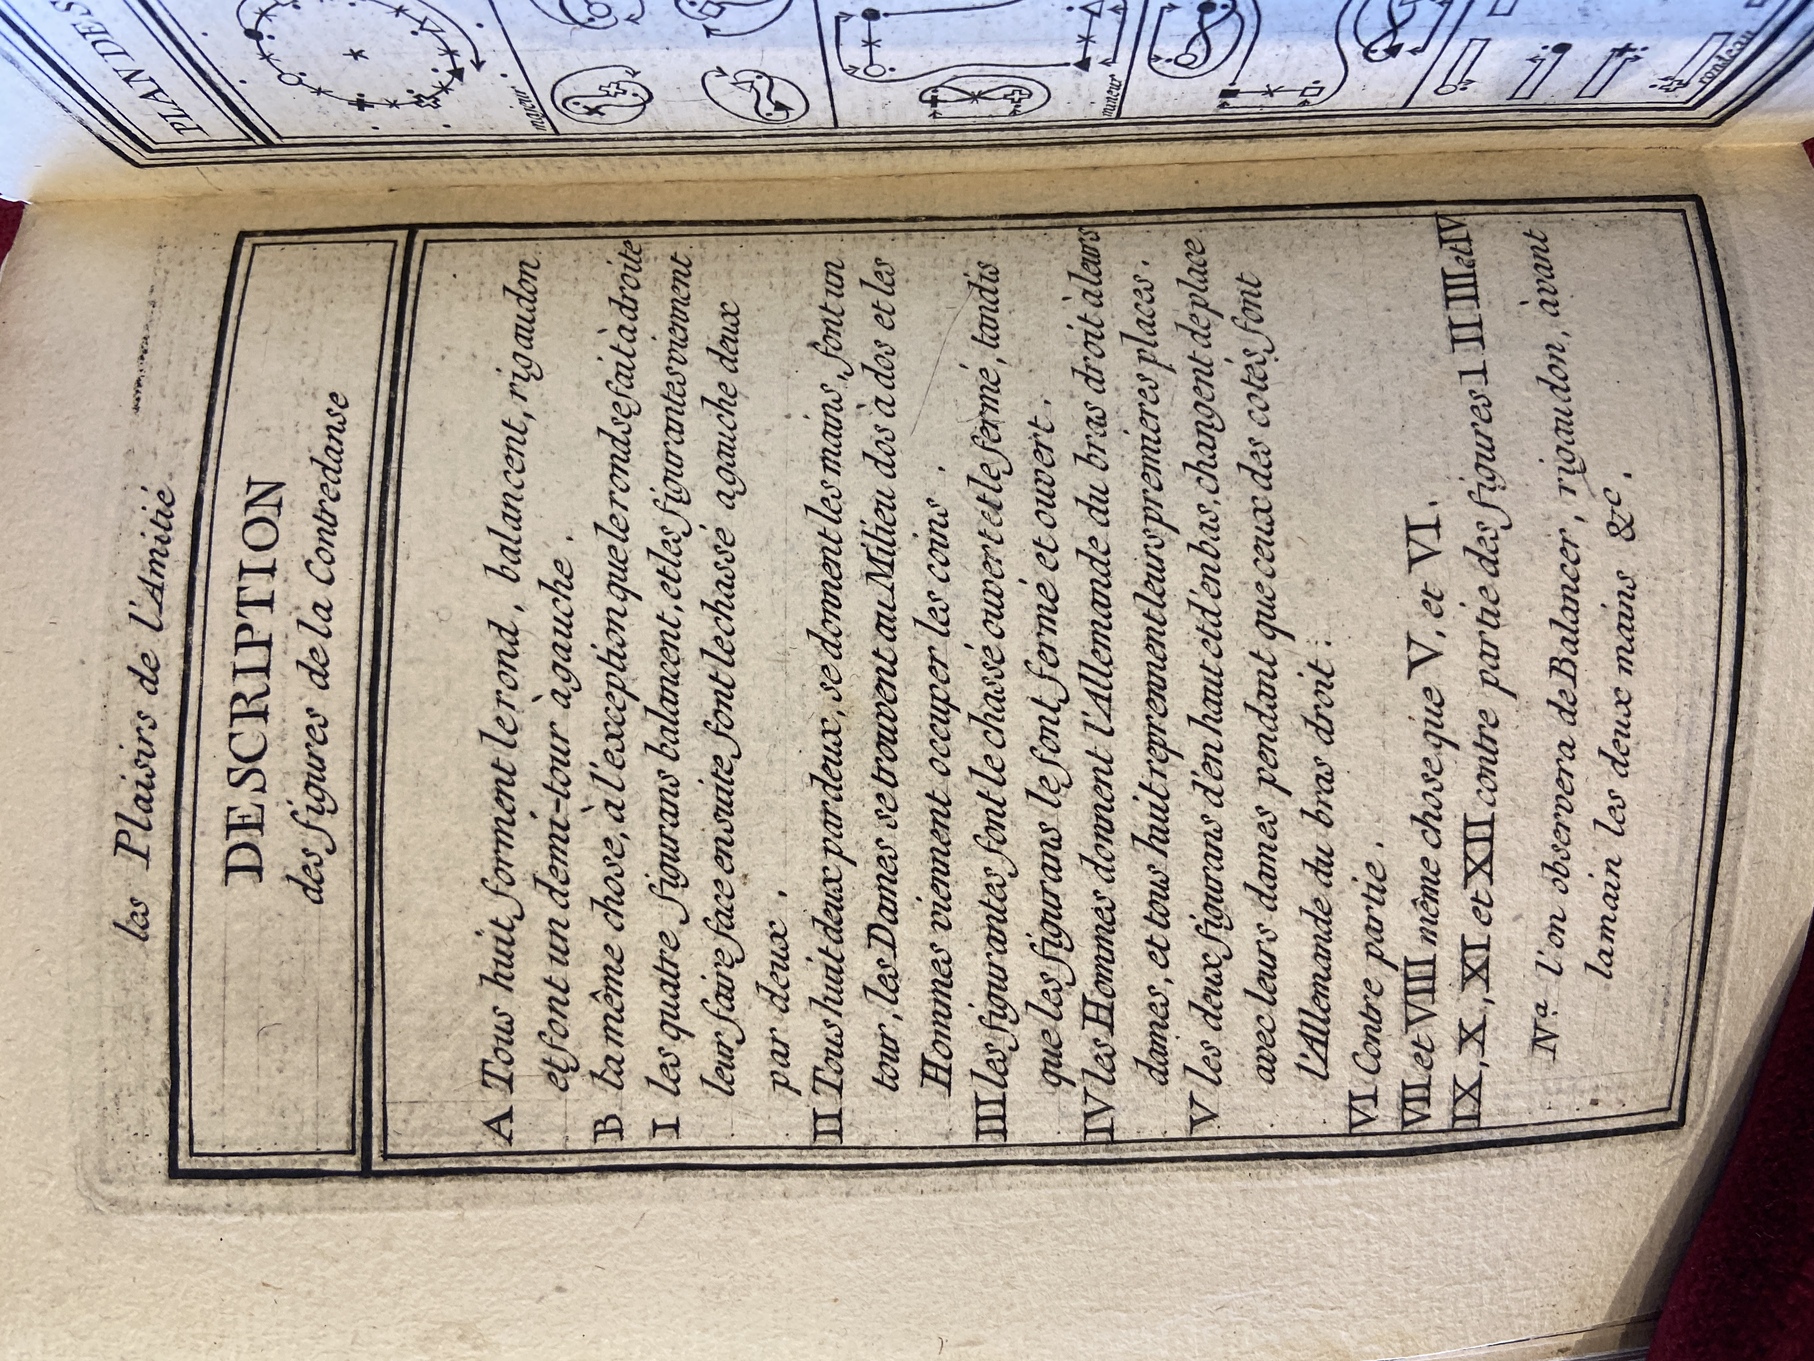 les Plaisirs de l'Amitié
DESCRIPTION
des figures de la Contredanse
A Tous huit forment le rond, balancent, rigaudon
et font un demi-tour à gauche.
B la même chose, à l'exception que le rond se fait à droite
I les quatre figurans balancent, et les figurantes viennent
leur faire face ensuite font le chassé a gauche deux
par deux.
II Tous huit deux par deux, se donnent les mains, font un
tour, les Dames se trouvent au Milieu dos à dos et les
Hommes viennent occuper les coins.
III les figurantes font le chassé ouvert et le fermé, tandis
que les figurans le font fermé et ouvert.
IV les Hommes donnent l'Allemande du bras droit à leurs
dames, et tous huit reprennent leurs premieres places.
V les deux figurans d'en haut et d'en bas, changent de place
avec leurs dames pendant que ceux des cotés font
l'Allemande du bras droit:
VI Contre partie.
VII et VIII même chose que V, et VI.
IX, X, XI et XII contre partie des figures I II III et IV
Nᵃ. l'on observera de Balancer, rigaudon, àvant
la main les deux mains &c.
PLAN DES
majeur
mineur
rondeau